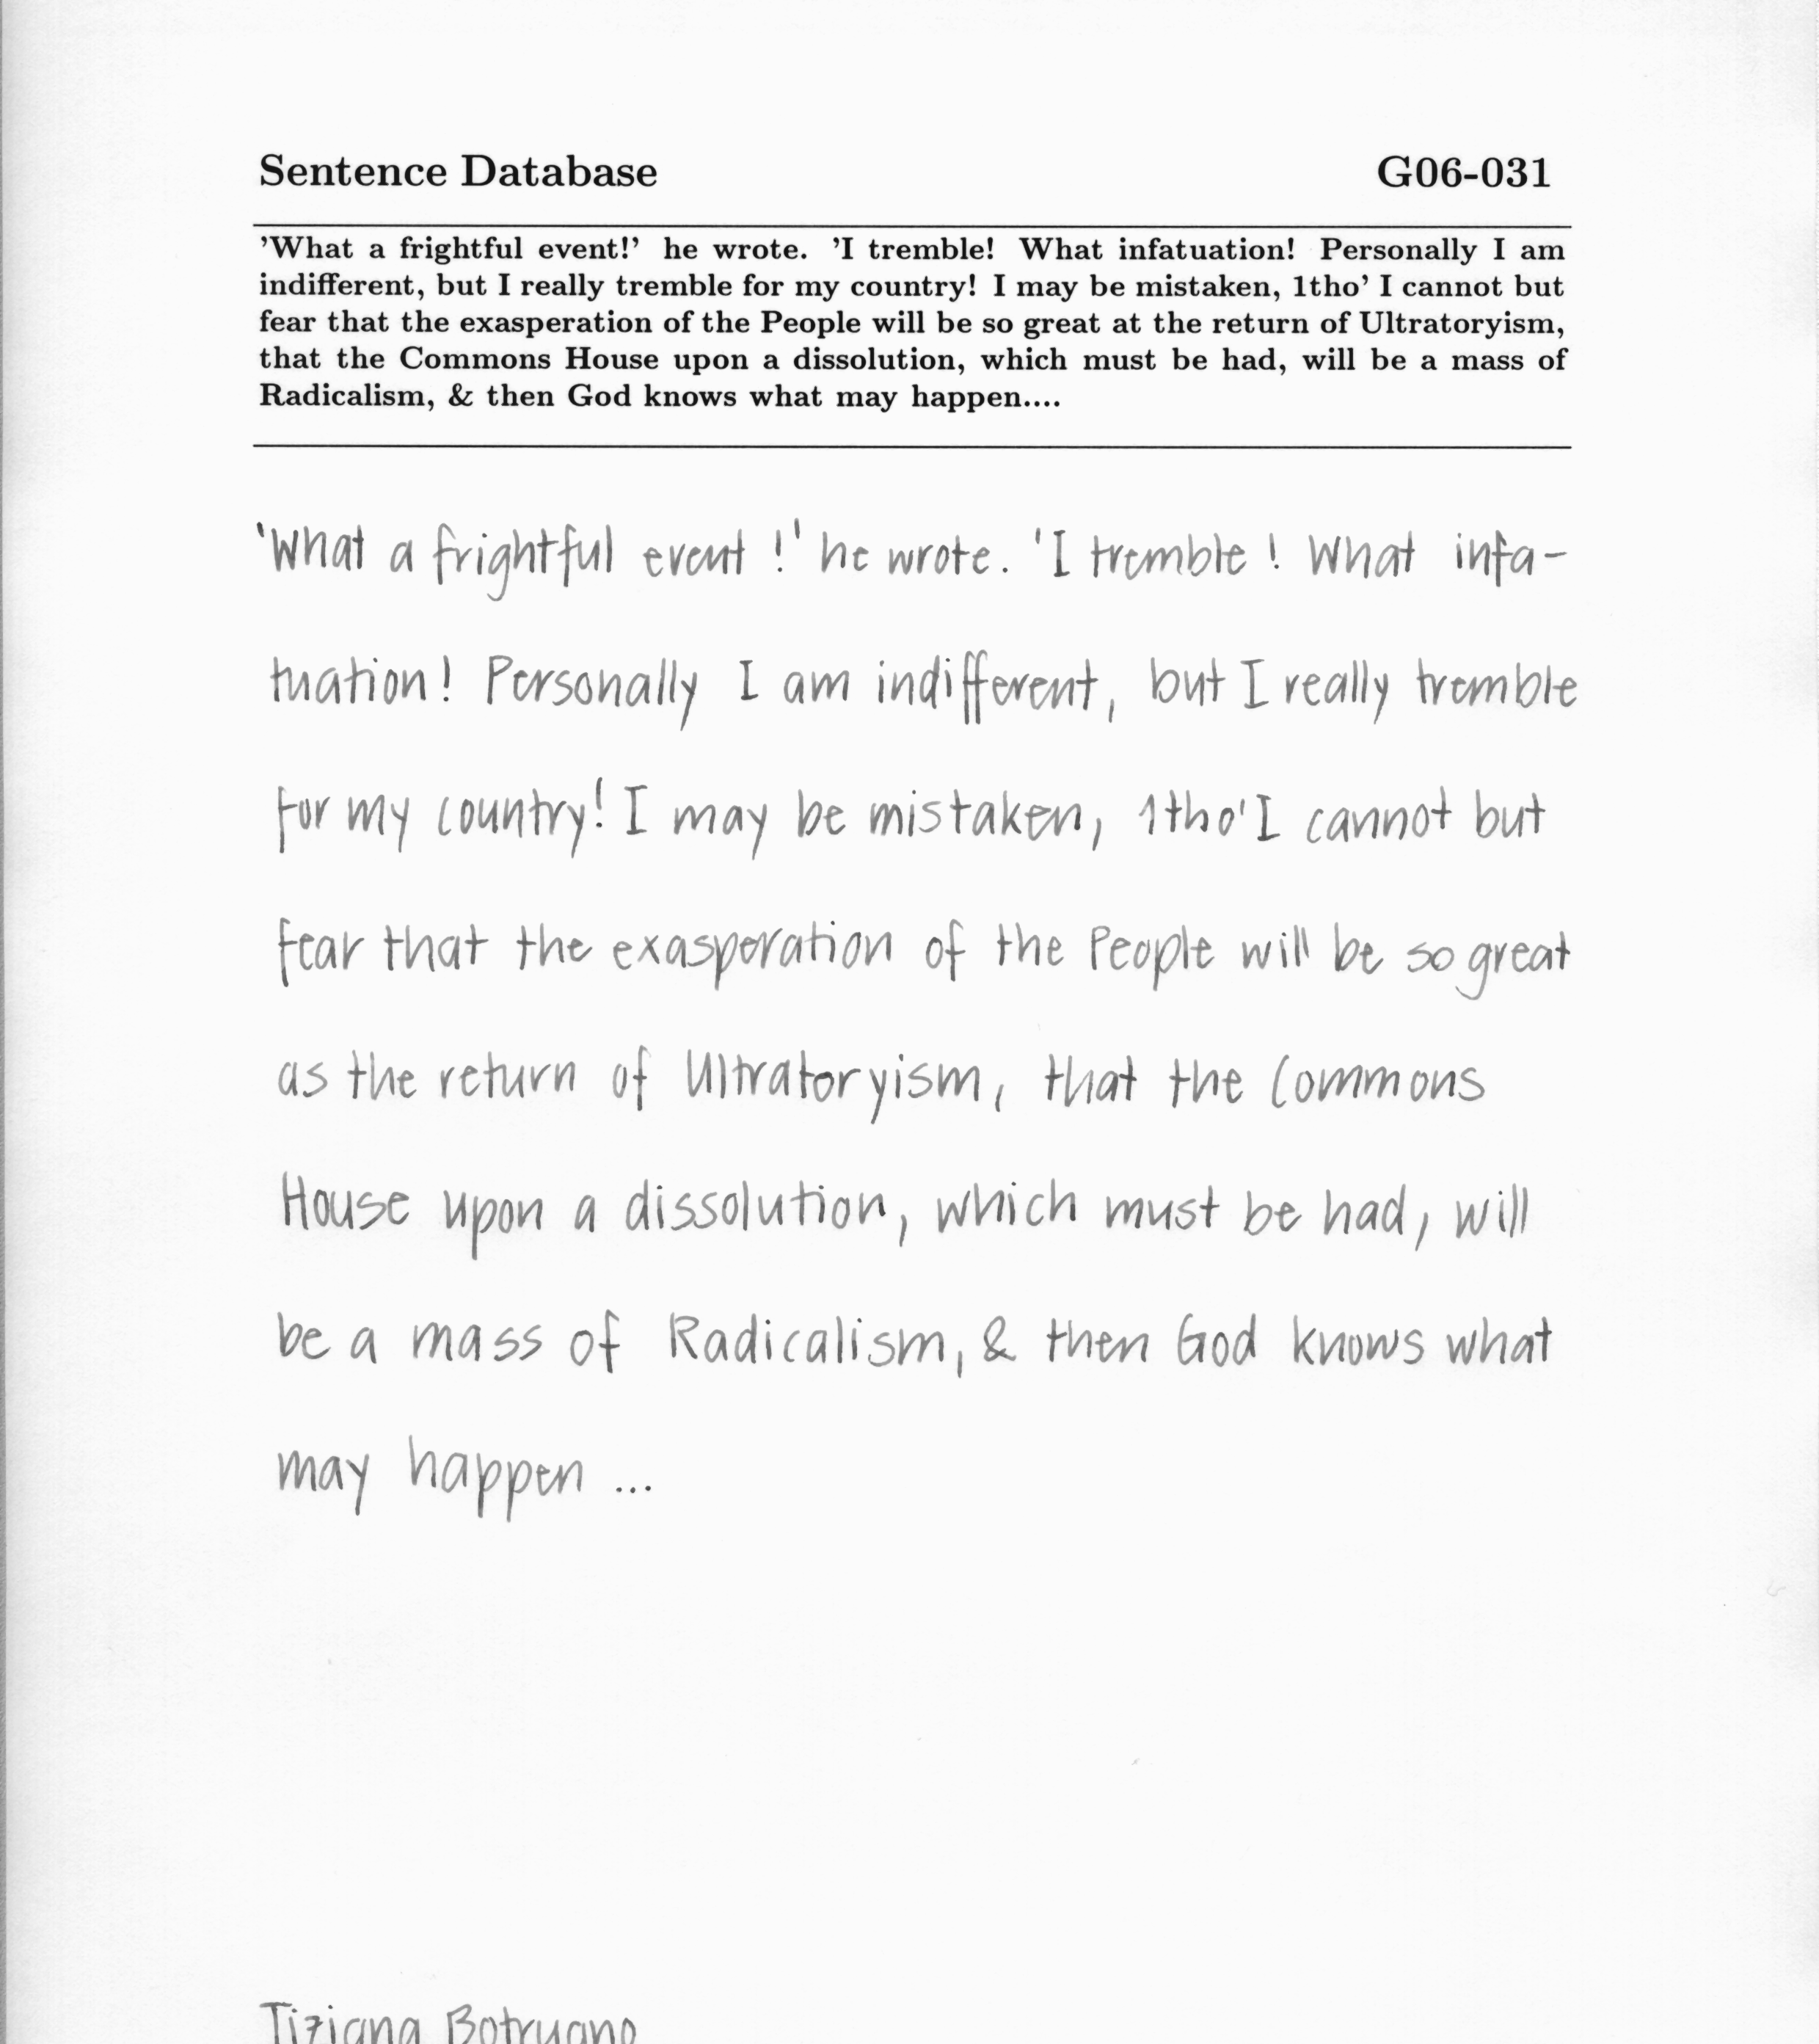 Sentence Database G06-031
’What a frightful event!’ he wrote. ’I tremble! What infatuation! Personally I am
indifferent, but I really tremble for my country! I may be mistaken, 1tho’ I cannot but
fear that the exasperation of the People will be so great at the return of Ultratoryism,
that the Commons House upon a dissolution, which must be had, will be a mass of
Radicalism, & then God knows what may happen....
'What a frightful event !' he wrote. 'I tremble ! What infa-
tuation! Personally I am indifferent, but I really tremble
for my country! I may be mistaken, 1tho' I cannot but
fear that the exasperation of the People will be so great
as the return of Ultratoryism, that the Commons
House upon a dissolution, which must be had, will
be a mass of Radicalism, & then God knows what
may happen ...
Tiziana